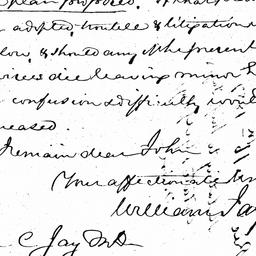 plan proposed.
adopted, trouble & litigation
low, & should any of the present
die leaving minor
confusion & difficulty would
creased
I remain dear John
Your affectionate
William Jay
C Jay MD